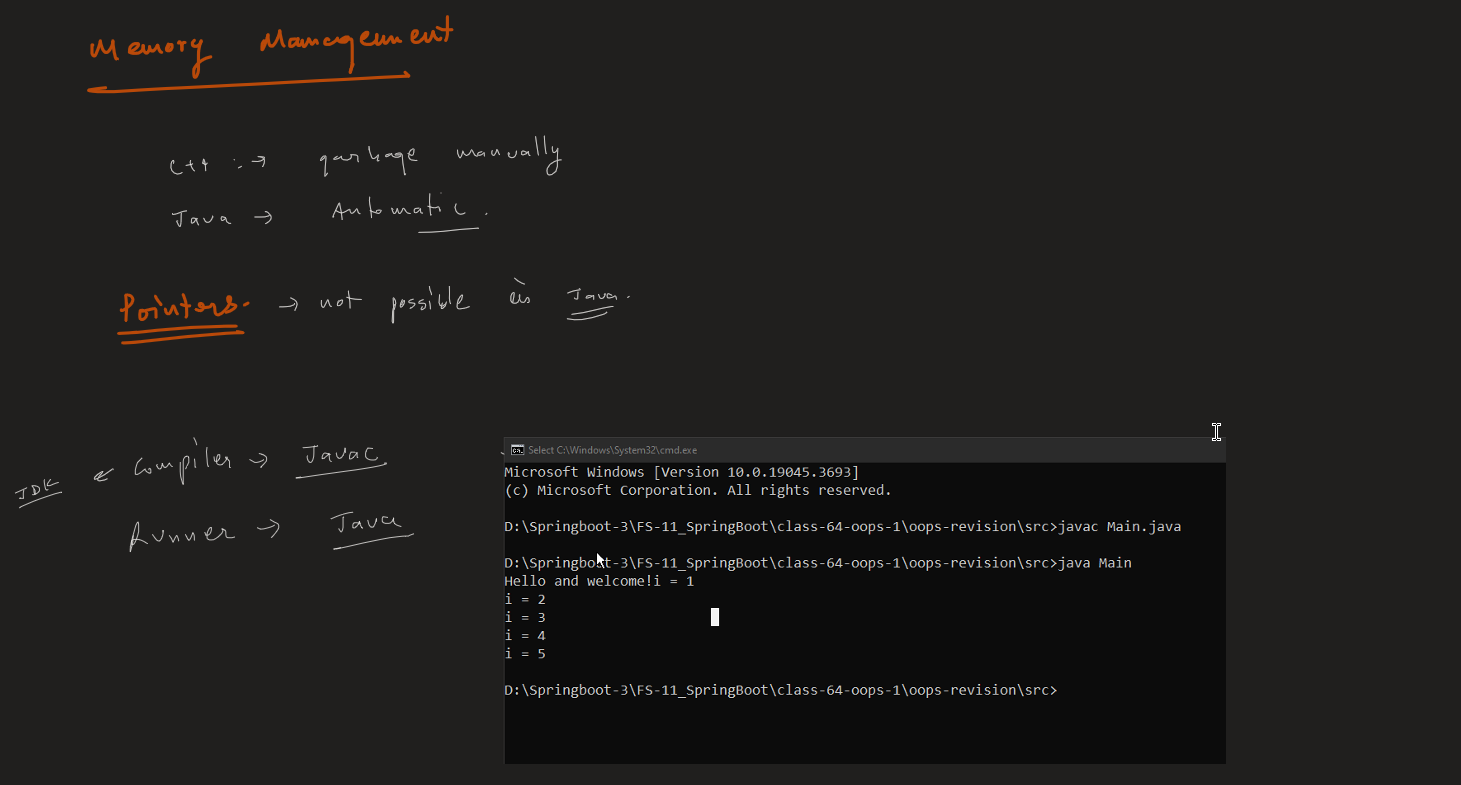 Memory Management
C++ :→ garbage manually
Java → Automatic.
Pointers. → not possible in Java.
JDK
Compiler → Javac
Runner → Java
Select C:\Windows\System32\cmd.exe
Microsoft Windows [Version 10.0.19045.3693]
(c) Microsoft Corporation. All rights reserved.
D:\Springboot-3\FS-11_SpringBoot\class-64-oops-1\oops-revision\src>javac Main.java
D:\Springboot-3\FS-11_SpringBoot\class-64-oops-1\oops-revision\src>java Main
Hello and welcome!i = 1
i = 2
i = 3
i = 4
i = 5
D:\Springboot-3\FS-11_SpringBoot\class-64-oops-1\oops-revision\src>